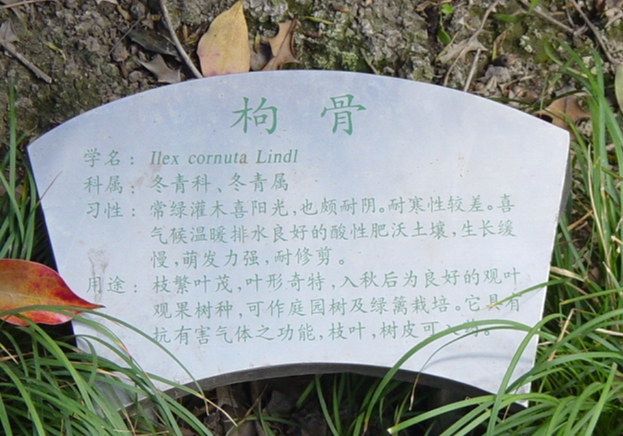 枸骨
学名：Ilex cornuta Lindl
科属：冬青科、冬青属
习性：常绿灌木喜阳光，也颇耐阴。耐寒性较差。喜
气候温暖排水良好的酸性肥沃土壤，生长缓
慢，萌发力强，耐修剪。
用途：枝繁叶茂，叶形奇特，入秋后为良好的观叶
观果树种，可作庭园树及绿篱栽培。它具有
抗有害气体之功能，枝叶，树皮可入药。